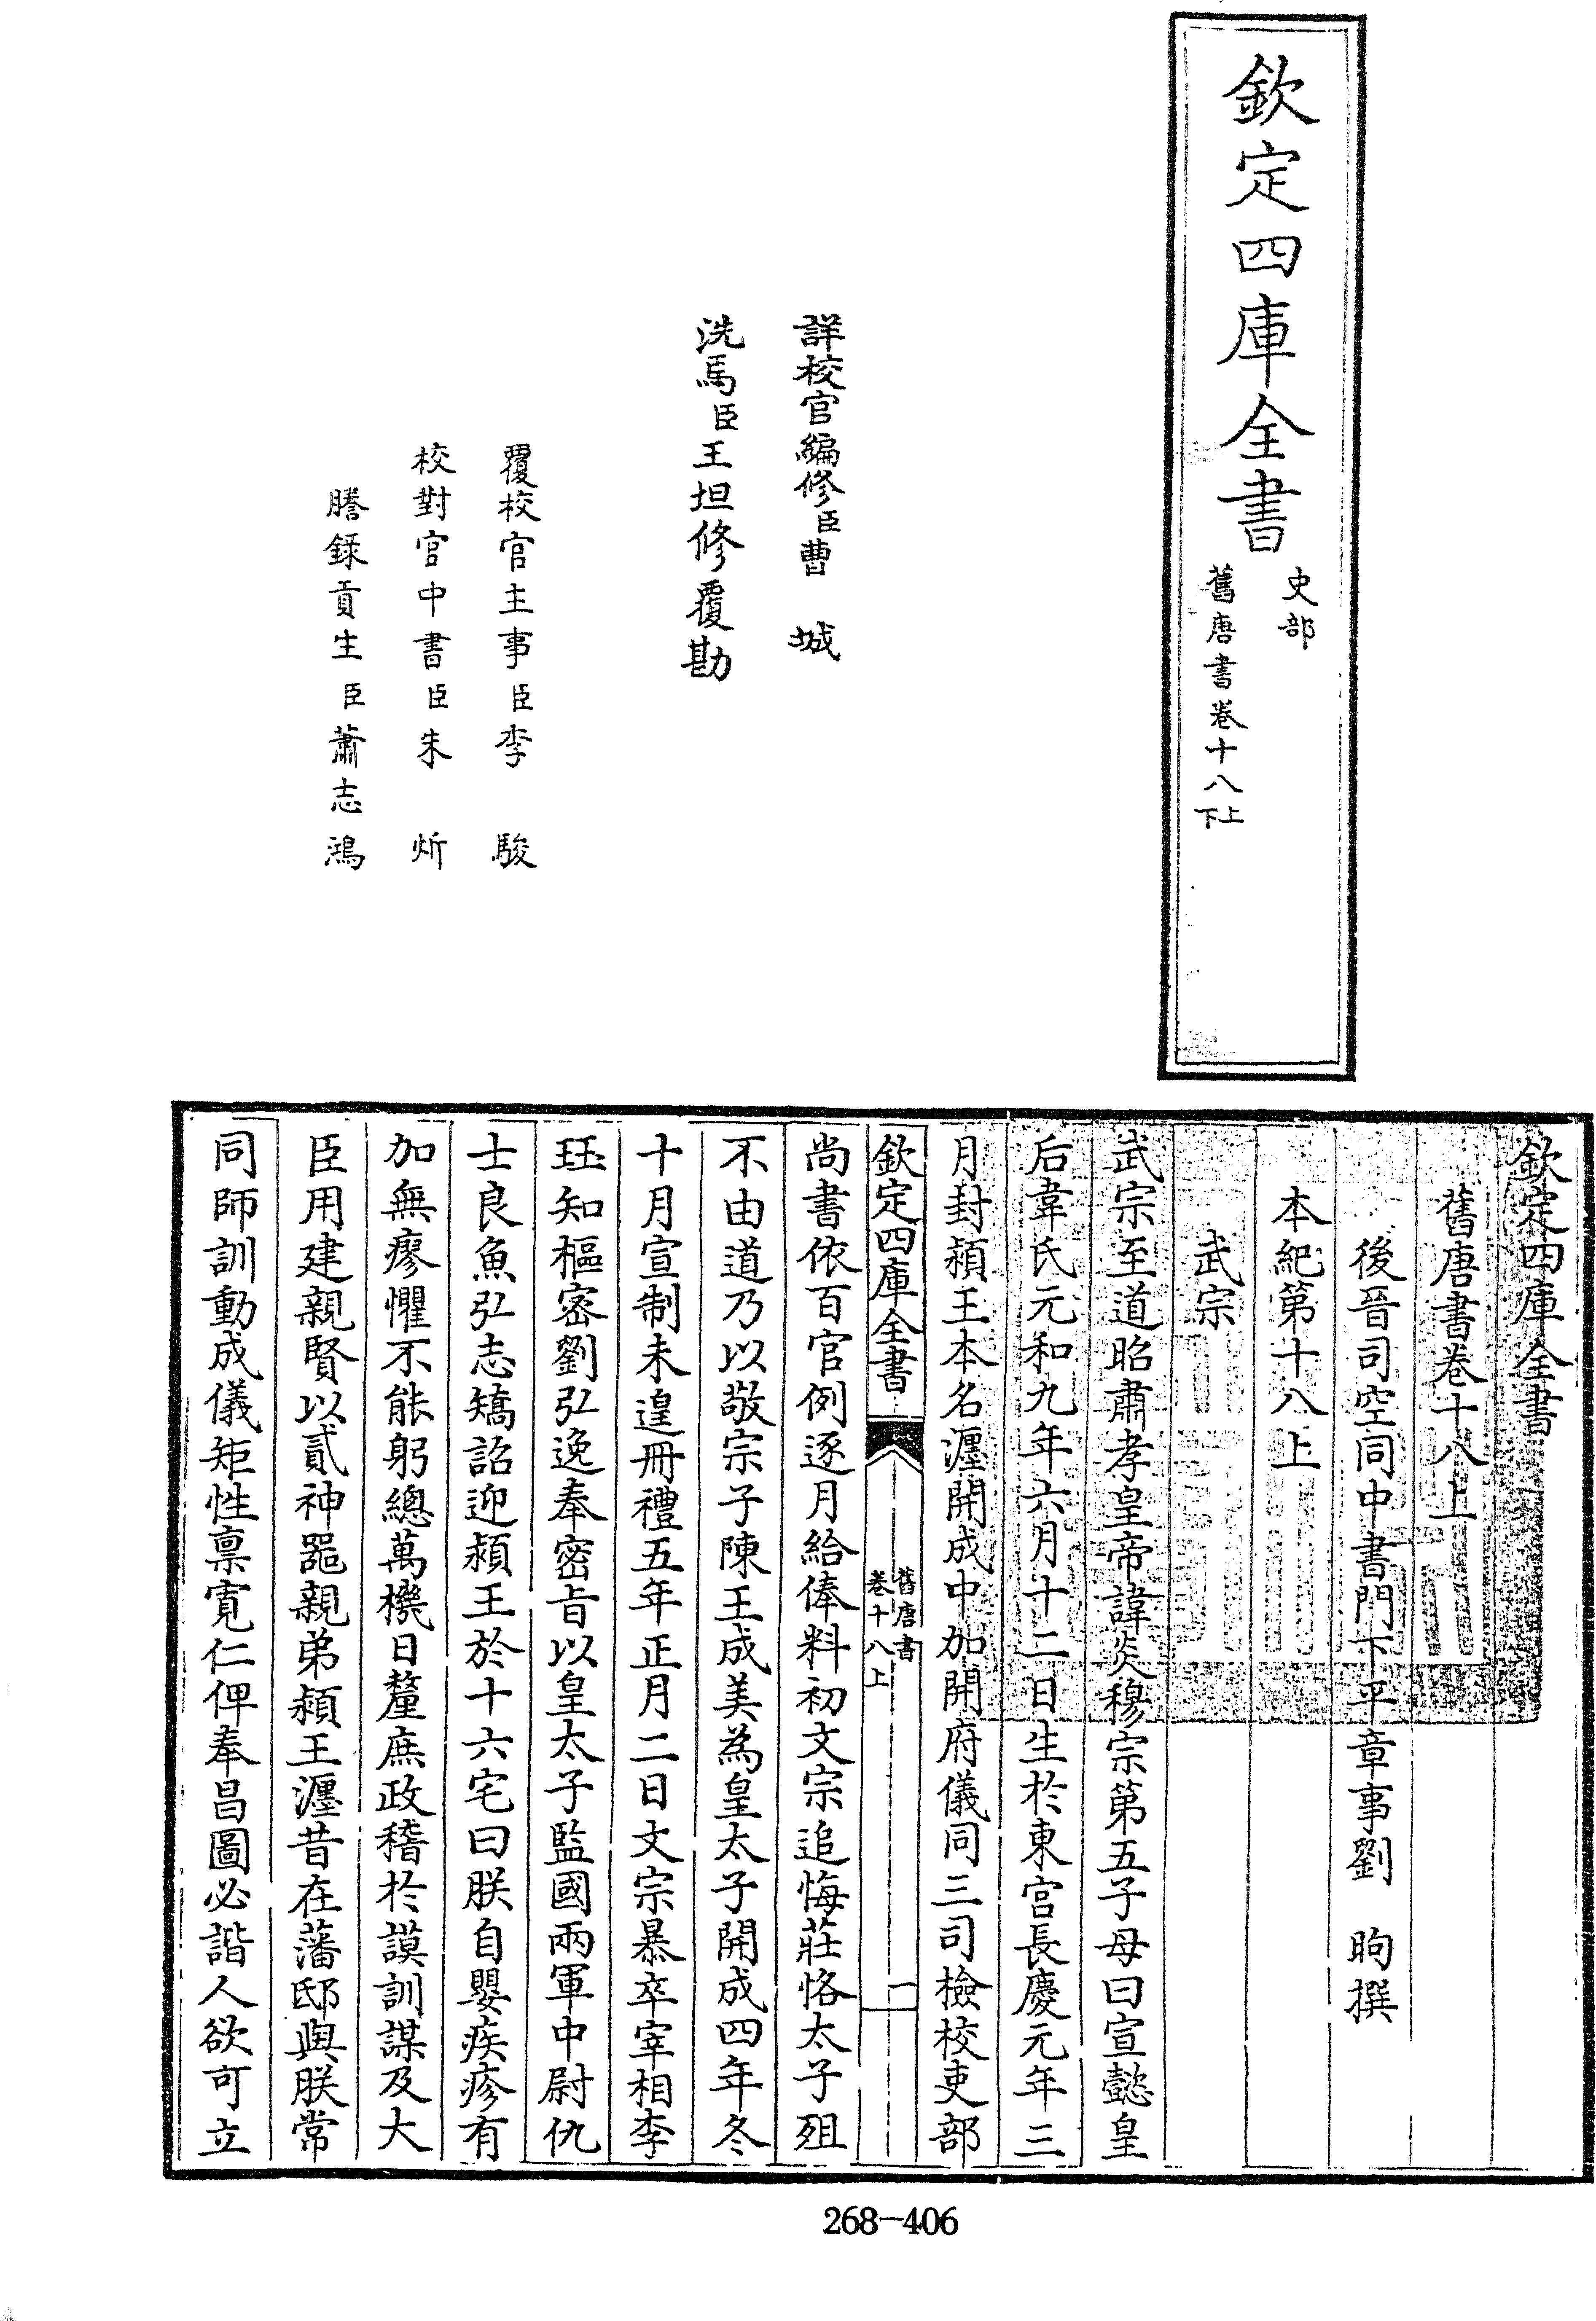 欽定四庫全書
史部
舊唐書卷十八上下
詳校官編修臣曹城
洗馬臣王坦修覆勘
覆校官主事臣李駿
校對官中書臣朱炘
謄錄貢生臣蕭志鴻
欽定四庫全書
舊唐書卷十八上
後晉司空同中書門下平章事劉昫撰
本紀第十八上
武宗
武宗至道昭肅孝皇帝諱炎穆宗第五子母曰宣懿皇
后韋氏元和九年六月十二日生於東宫長慶元年三
月封潁王本名瀍開成中加開府儀同三司檢校吏部
欽定四庫全書
舊唐書
卷十八上
一
尚書依百官例逐月給俸料初文宗追悔莊恪太子殂
不由道乃以敬宗子陳王成美為皇太子開成四年冬
十月宣制未遑冊禮五年正月二日文宗暴卒宰相李
珏知樞密劉弘逸奉密旨以皇太子監國兩軍中尉仇
士良魚弘志矯詔迎潁王於十六宅曰朕自嬰疾疹有
加無瘳懼不能躬總萬機日釐庶政稽於謨訓謀及大
臣用建親賢以貳神器親弟潁王瀍昔在藩邸與朕常
同師訓動成儀矩性禀寛仁俾奉昌圖必諧人欲可立
268-406